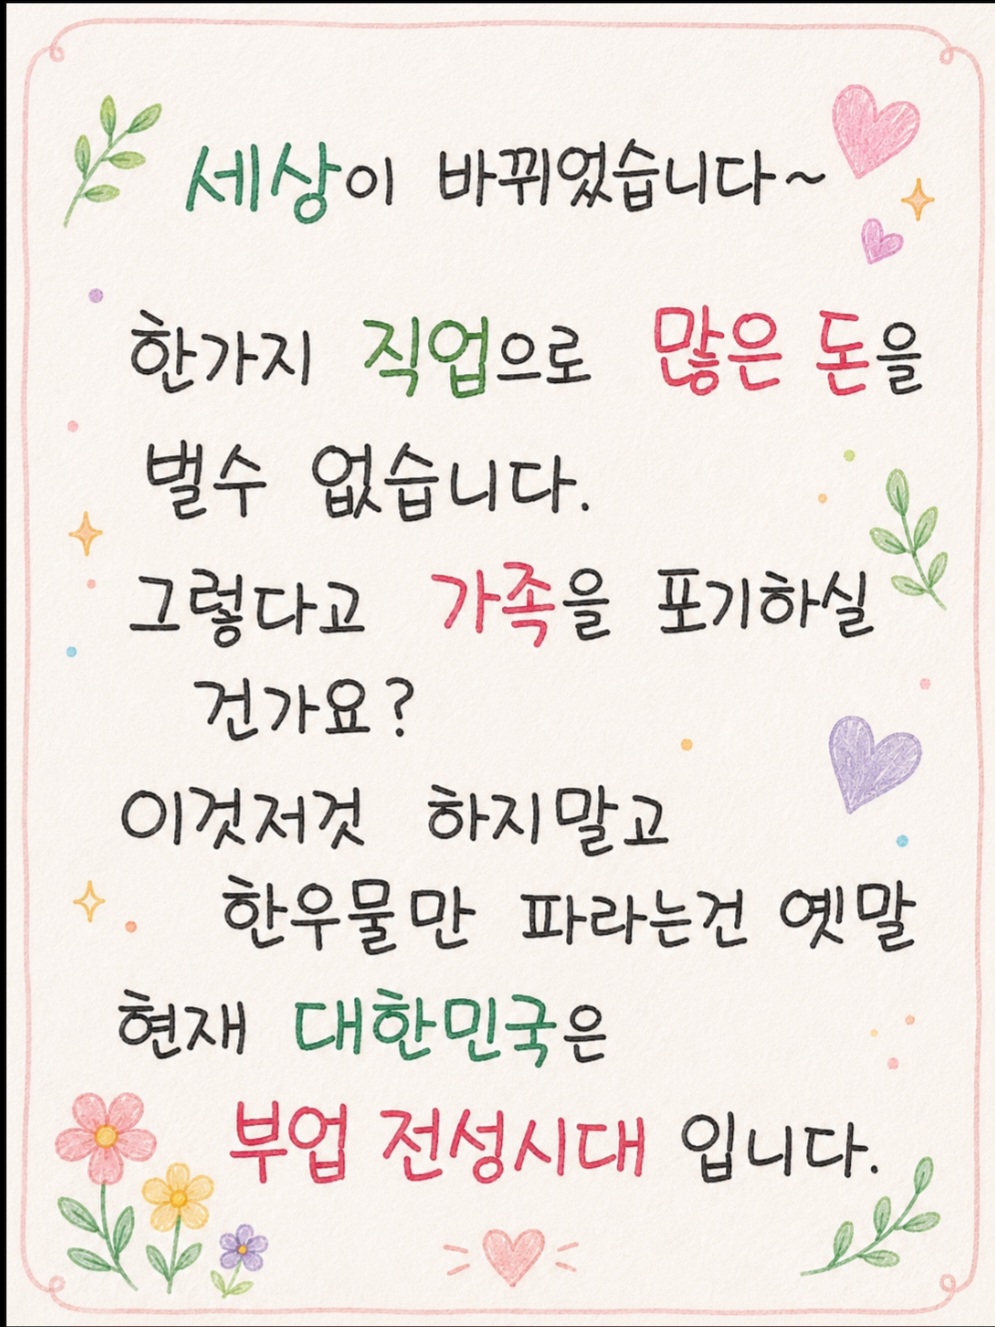 세상이 바뀌었습니다~
한가지 직업으로 많은 돈을
벌수 없습니다.
그렇다고 가족을 포기하실
건가요?
이것저것 하지말고
한우물만 파라는건 옛말
현재 대한민국은
부업 전성시대 입니다.